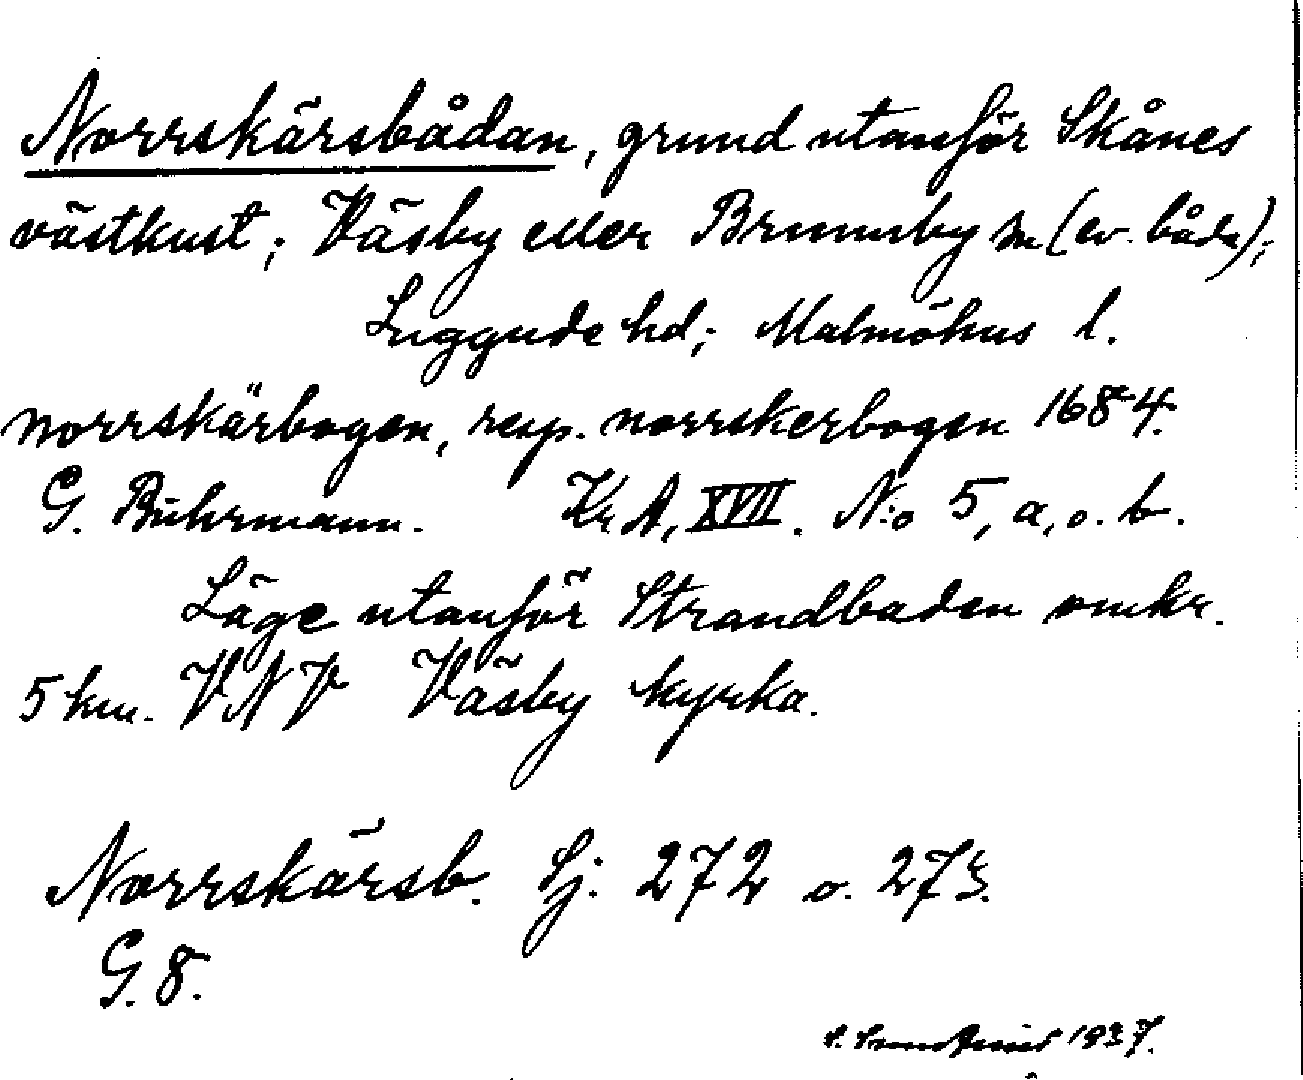 Norrskärsbådan, grund utanför Skånes
västkust; Väsby eller Brunnby sn (ev. båda);
Luggude hd; Malmöhus l.
norrskärbogen, resp. norrskerbogen 1684.
G. Buhrmann. Kr A, XVII. N:o 5, a, o. b.
Läge utanför Strandbaden omkr.
5 km. VNV Väsby kyrka.
Norrskärsb. Sj. 272 o. 273.
G. 8.
1937.